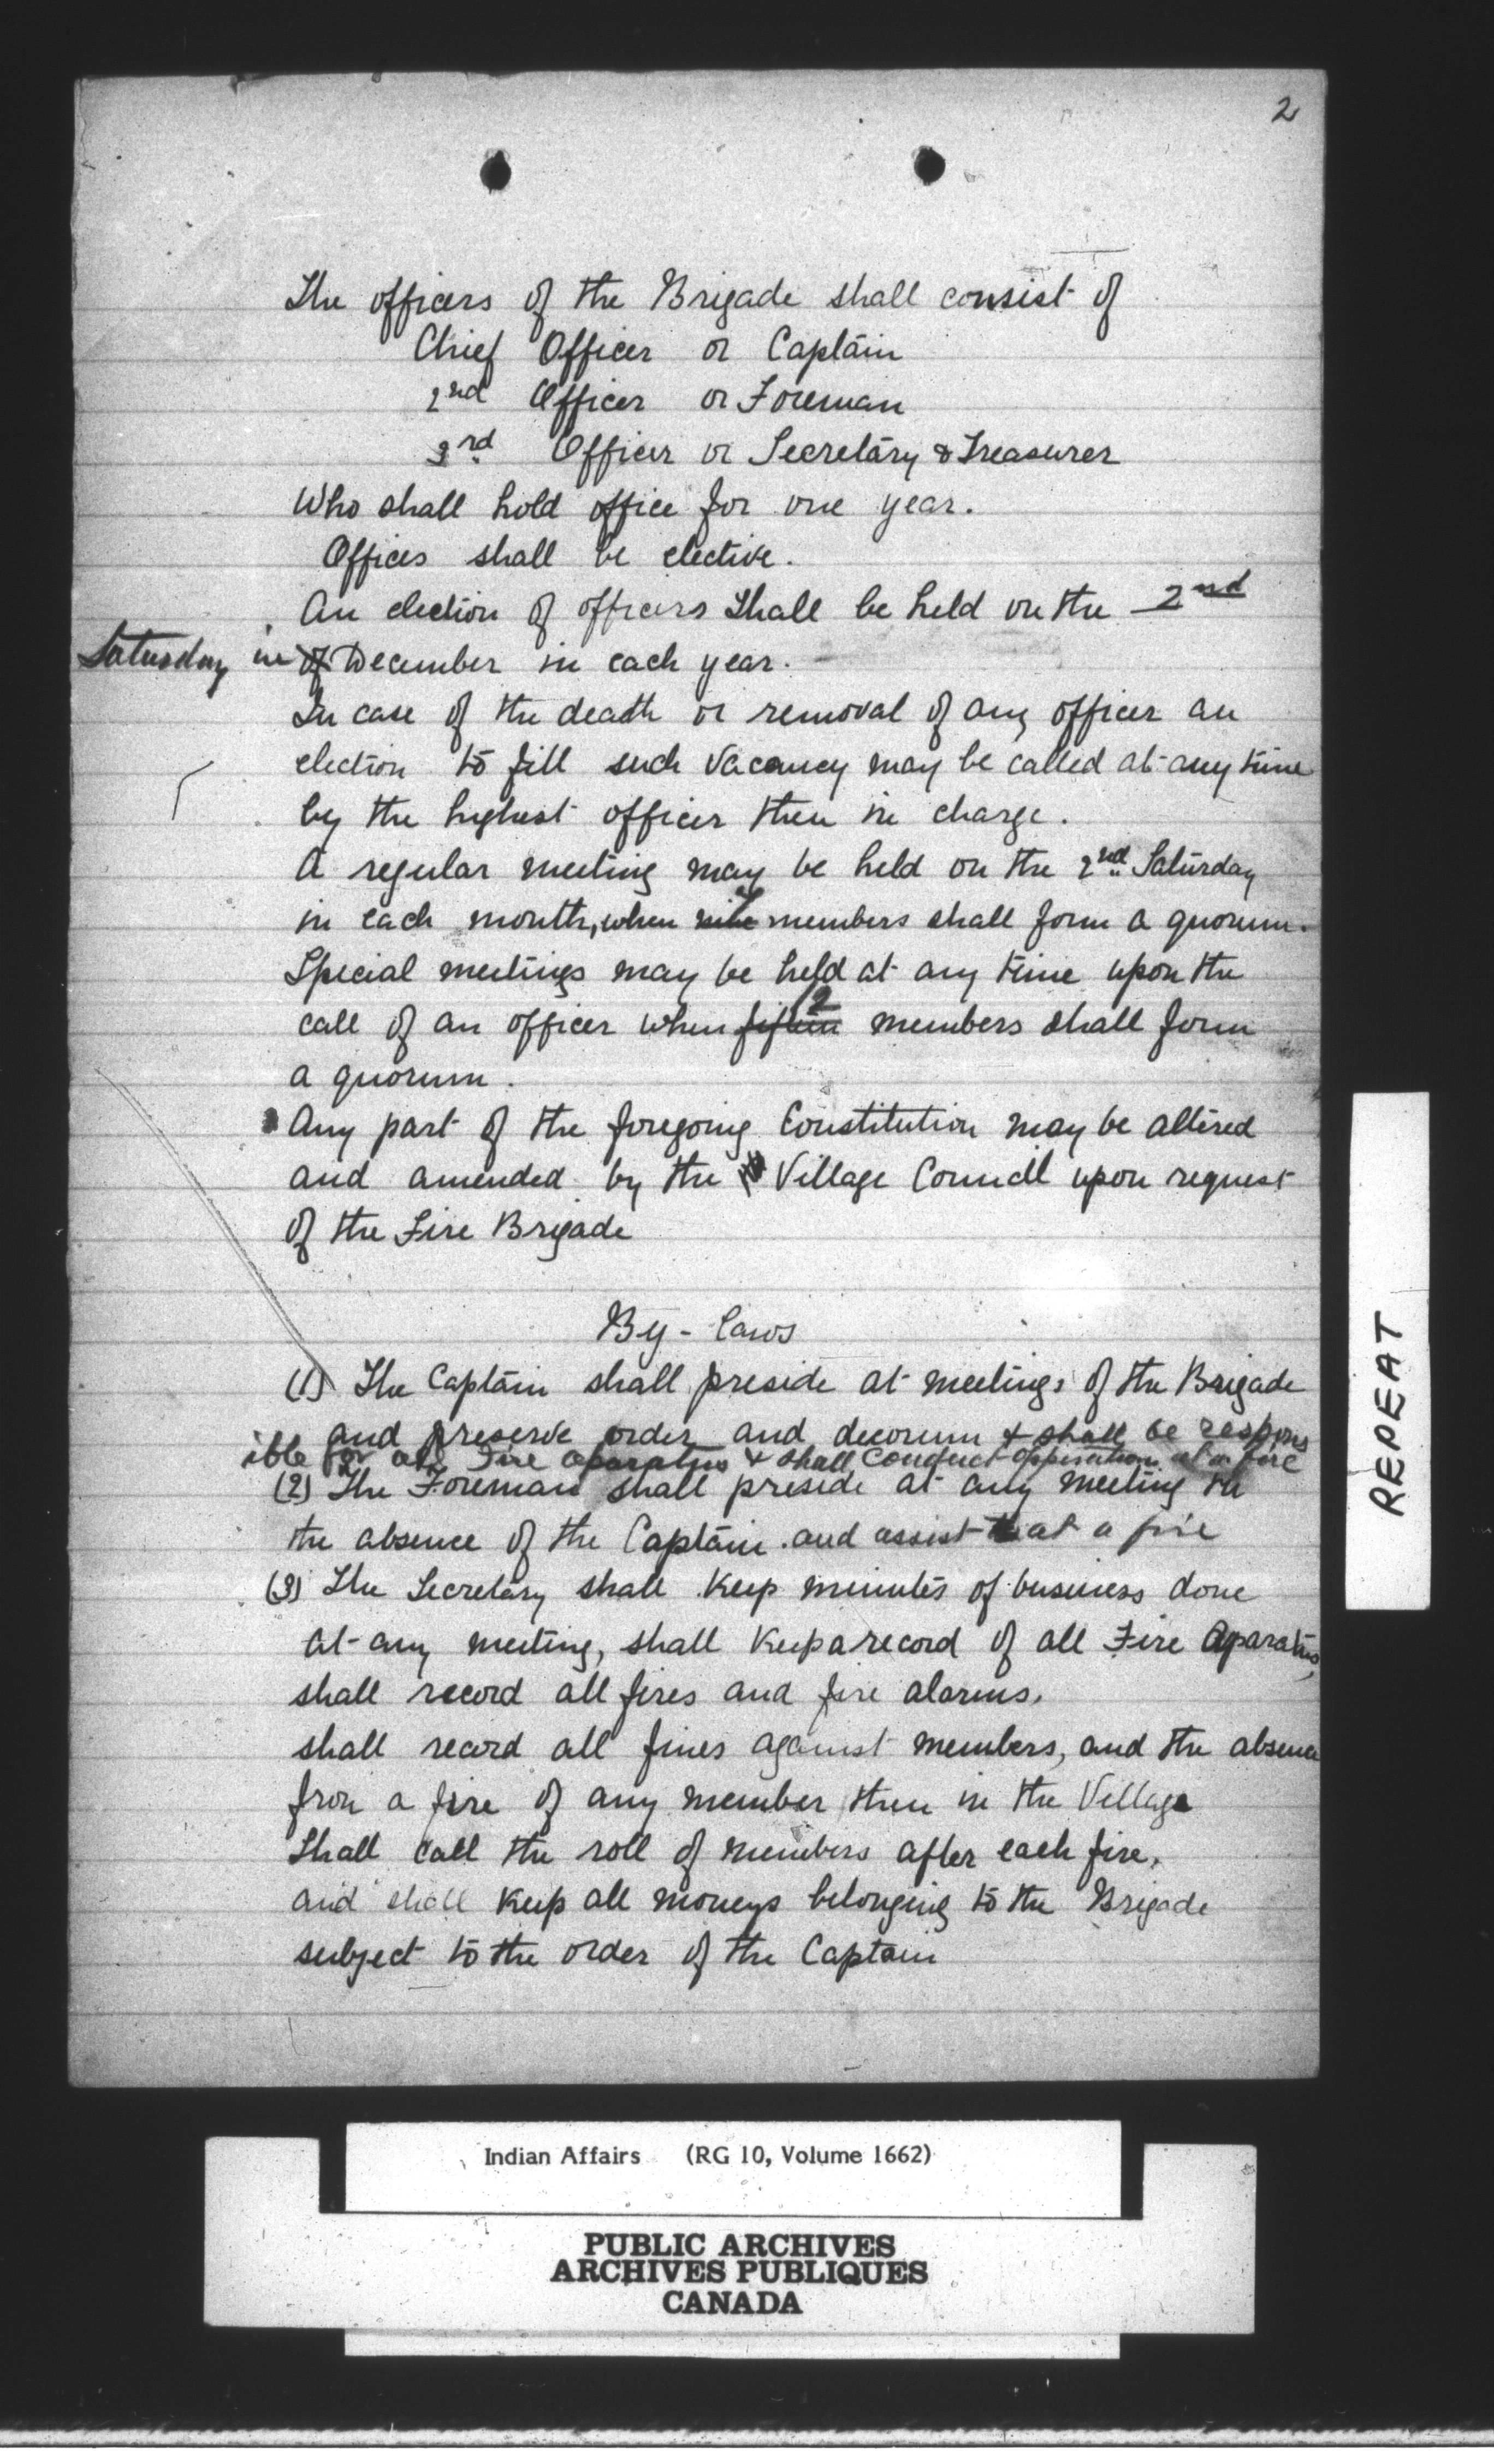 2
The officers of the Brigade shall consist of
Chief Officer or Captain
2nd Officer or Foreman
3rd Officer or Secretary & Treasurer
Who shall hold office for one year.
Offices shall be elective.
An election of officers shall be held on the 2nd
Saturday in of December in each year.
In case of the death or removal of any officer an
election to fill such vacancy may be called at any time
by the highest officer then in charge.
A regular meeting may be held on the 2nd Saturday
in each month, when nine members shall form a quorum.
Special meetings may be held at any time upon the
12
call of an officer when fifteen members shall form
a quorum.
Any part of the foregoing Constitution may be altered
and amended by the Village Council upon request
of the Fire Brigade
By-laws
(1) The Captain shall preside at meetings of the Brigade
and preserve order and decorum & shall be respons
ible for all Fire aparatus & shall Conduct opperations at a fire
(2) The Foreman shall preside at any meeting in
the absence of the Captain. and assist at a fire
(3) The Secretary shall keep minutes of business done
at any meeting, shall keep a record of all Fire Aparatus,
shall record all fires and fire alarms,
shall record all fines against members, and the absence
from a fire of any member then in the Village
Shall call the roll of members after each fire,
and shall keep all moneys belonging to the Brigade
subject to the order of the Captain
REPEAT
Indian Affairs (RG 10, Volume 1662)
PUBLIC ARCHIVES
ARCHIVES PUBLIQUES
CANADA